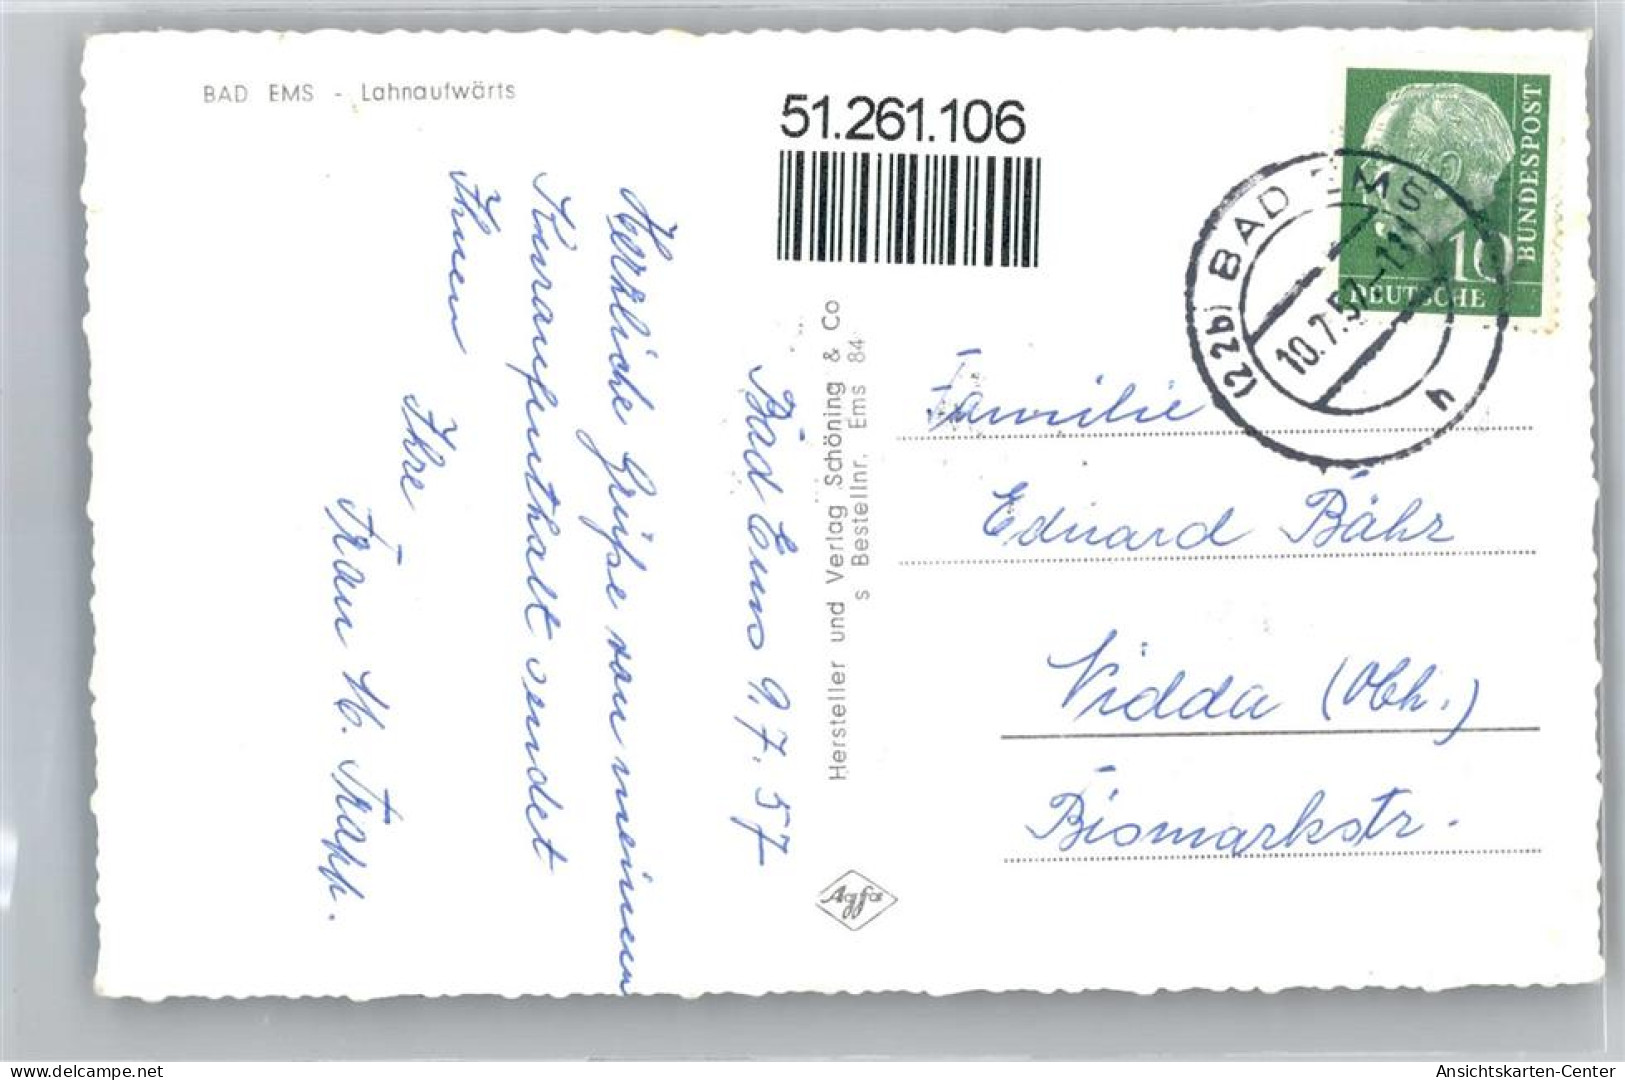 BAD EMS - Lahnaufwärts
51.261.106
Bad Ems 9.7.57
Herzliche Grüße von meinem
Kuraufenthalt sendet
Ihnen
Ihre
Frau H. Trapp.
Hersteller und Verlag Schöning & Co
s Bestellnr. Ems 84
Agfa
DEUTSCHE
BUNDESPOST
10
(22b) BAD EMS
10.7.57.-11
Familie
Eduard Bähr
Nidda (Obh.)
Bismarkstr.
delcampe.net
Ansichtskarten-Center